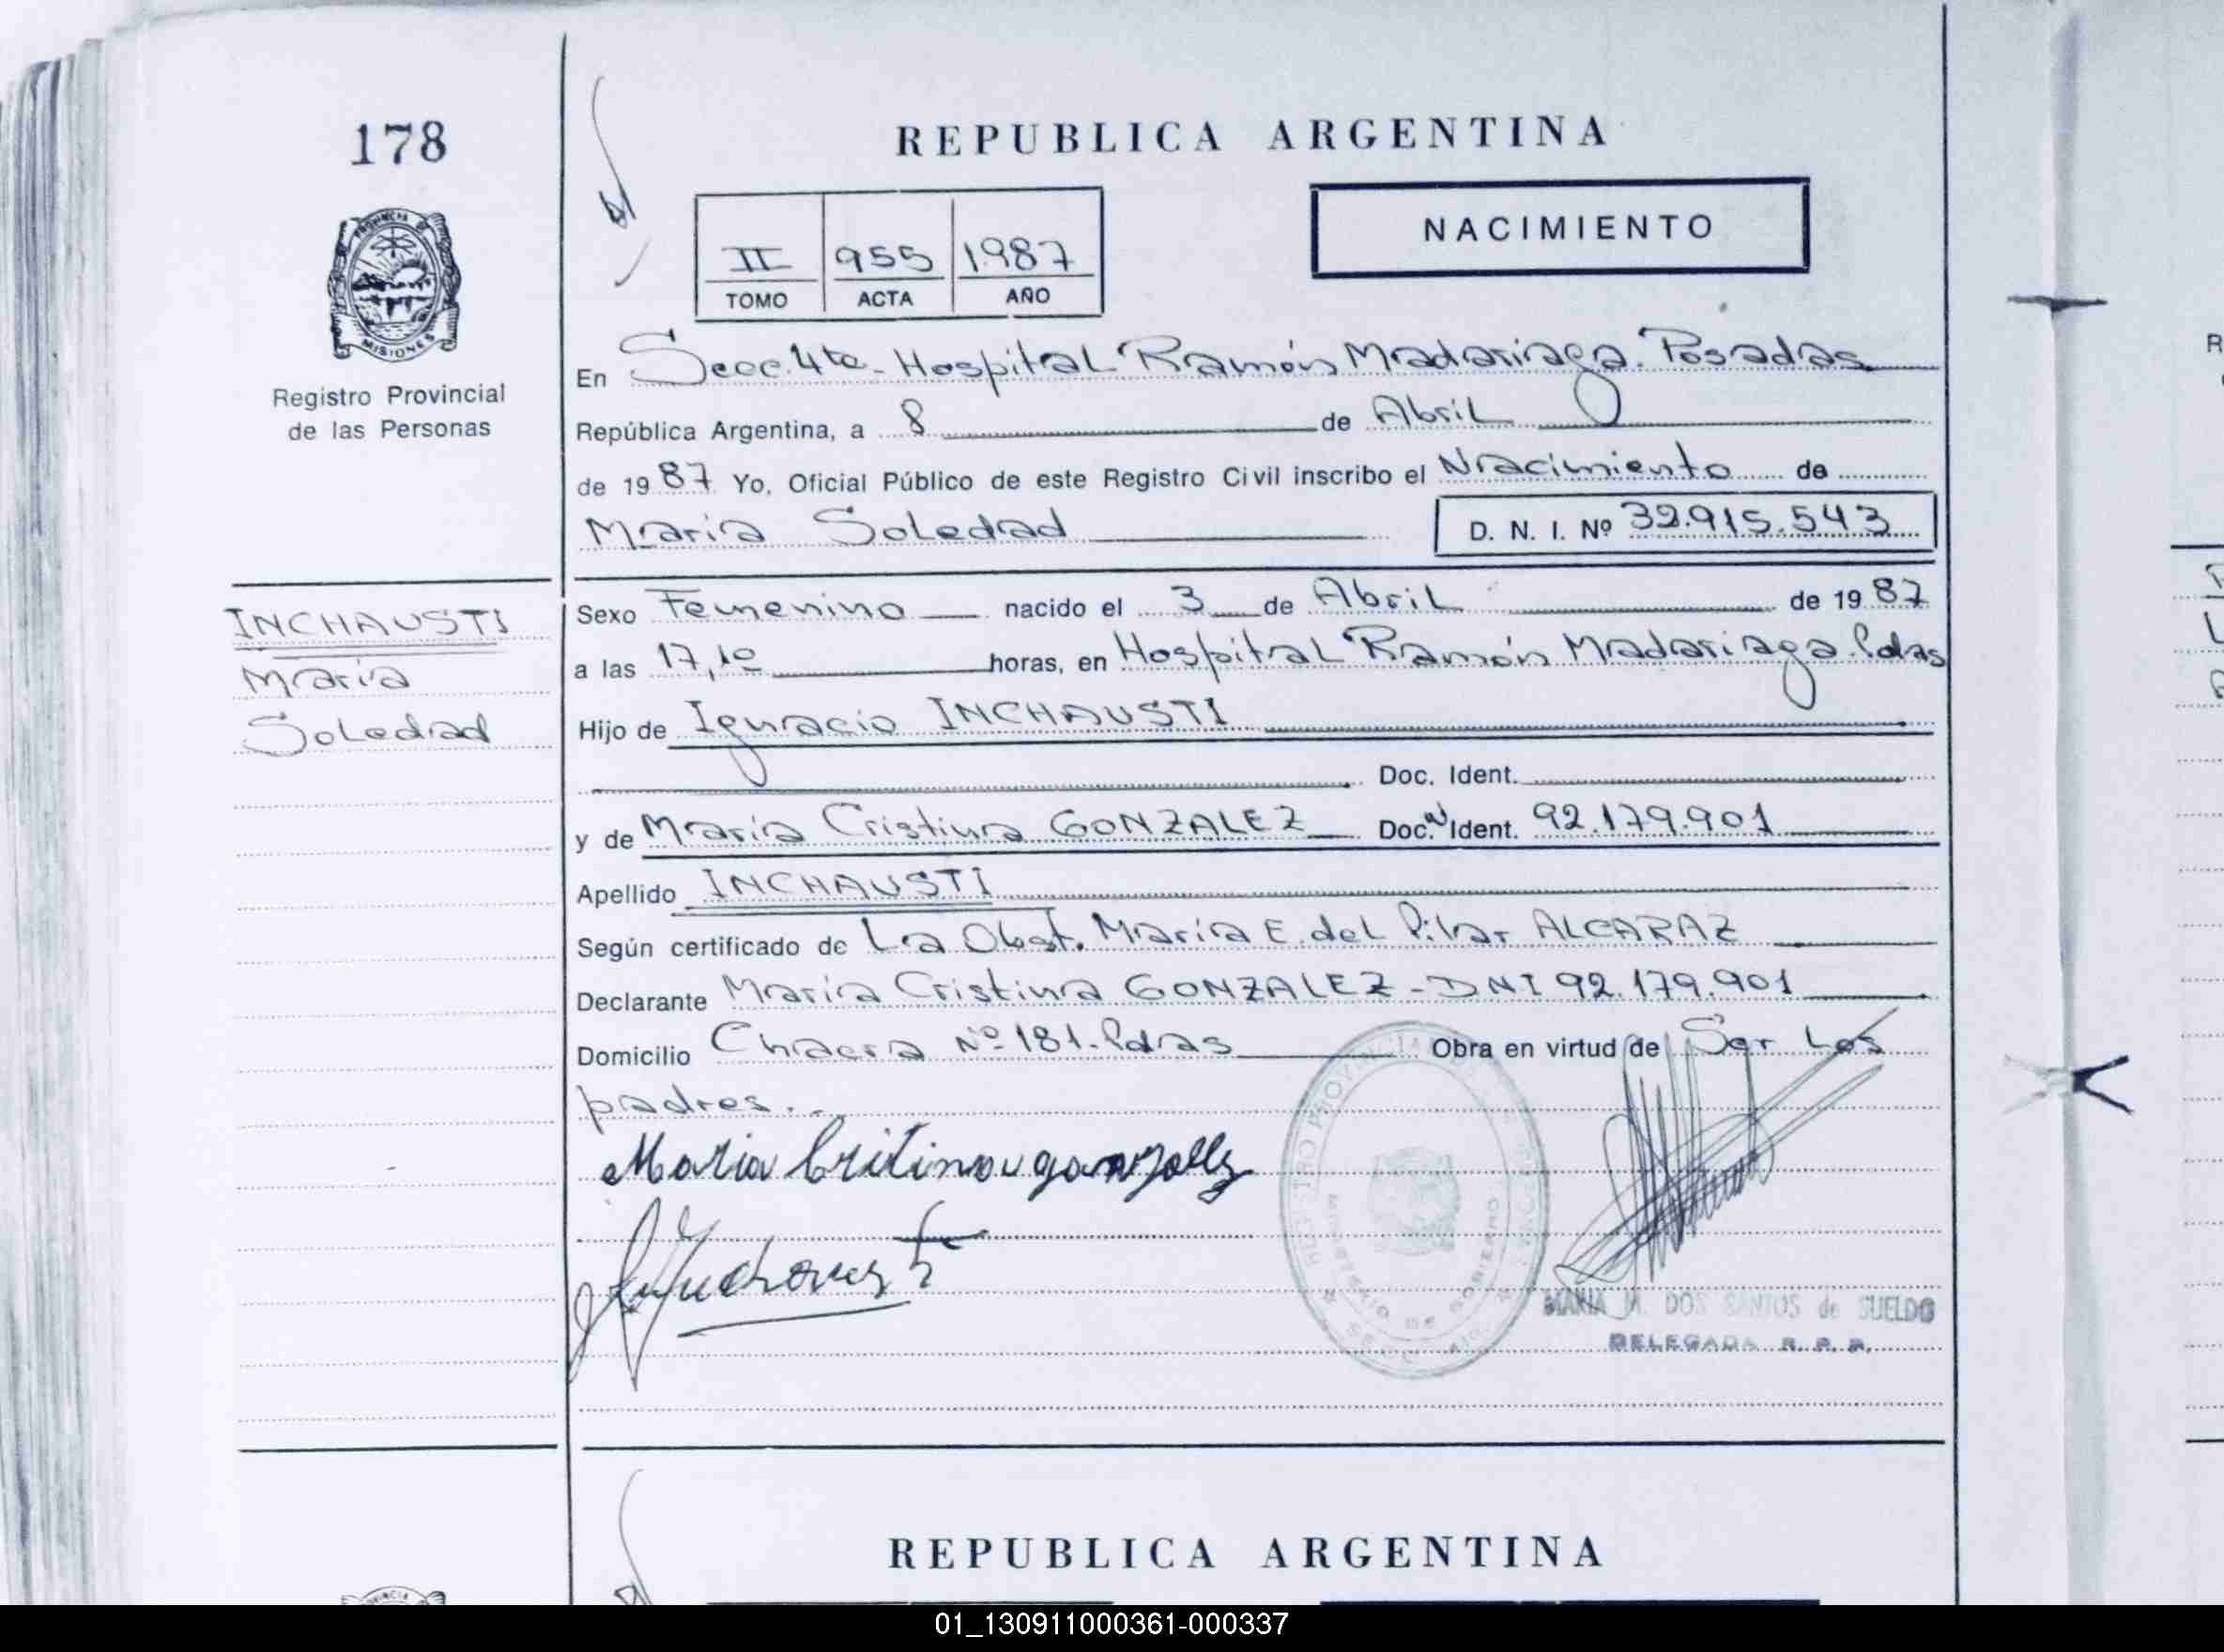 178
PROVINCIA DE
MISIONES
Registro Provincial
de las Personas
REPUBLICA ARGENTINA
NACIMIENTO
II 955 1987
TOMO ACTA AÑO
En Secc. 4ta - Hospital Ramón Madariaga. Posadas
República Argentina, a 8 de Abril
de 1987 Yo, Oficial Público de este Registro Civil inscribo el Nacimiento de
María Soledad D. N. I. Nº 32.915.543
INCHAUSTI
María
Soledad
Sexo Femenino nacido el 3 de Abril de 1987
a las 17,10 horas, en Hospital Ramón Madariaga. Pdas
Hijo de Ignacio INCHAUSTI
Doc. Ident.
y de María Cristina GONZALEZ Doc. Ident. 92.179.901
Apellido INCHAUSTI
Según certificado de La Obst. María E. del Pilar ALCARAZ
Declarante María Cristina GONZALEZ - DNI 92.179.901
Domicilio Chacra Nº 181. Pdas Obra en virtud de Ser Los
padres.
Maria Critina gonzalez
MARIA M. DOS SANTOS de SUELDO
DELEGADA R. P. P.
REPUBLICA ARGENTINA
01_130911000361-000337